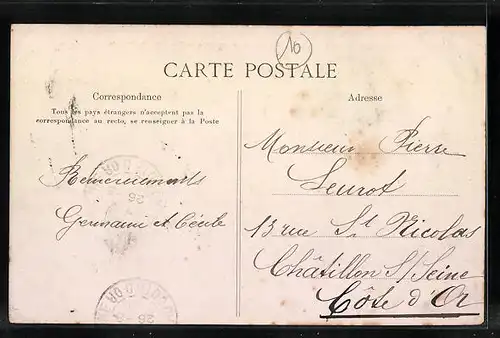 16
CARTE POSTALE
Correspondance
Tous les pays étrangers n'acceptent pas la
correspondance au recto, se renseigner à la Poste
Adresse
Remerciements
Germaine et Cécile
Monsieur Pierre
Leurot
13 rue St Nicolas
Châtillon S/Seine
Côte d'Or